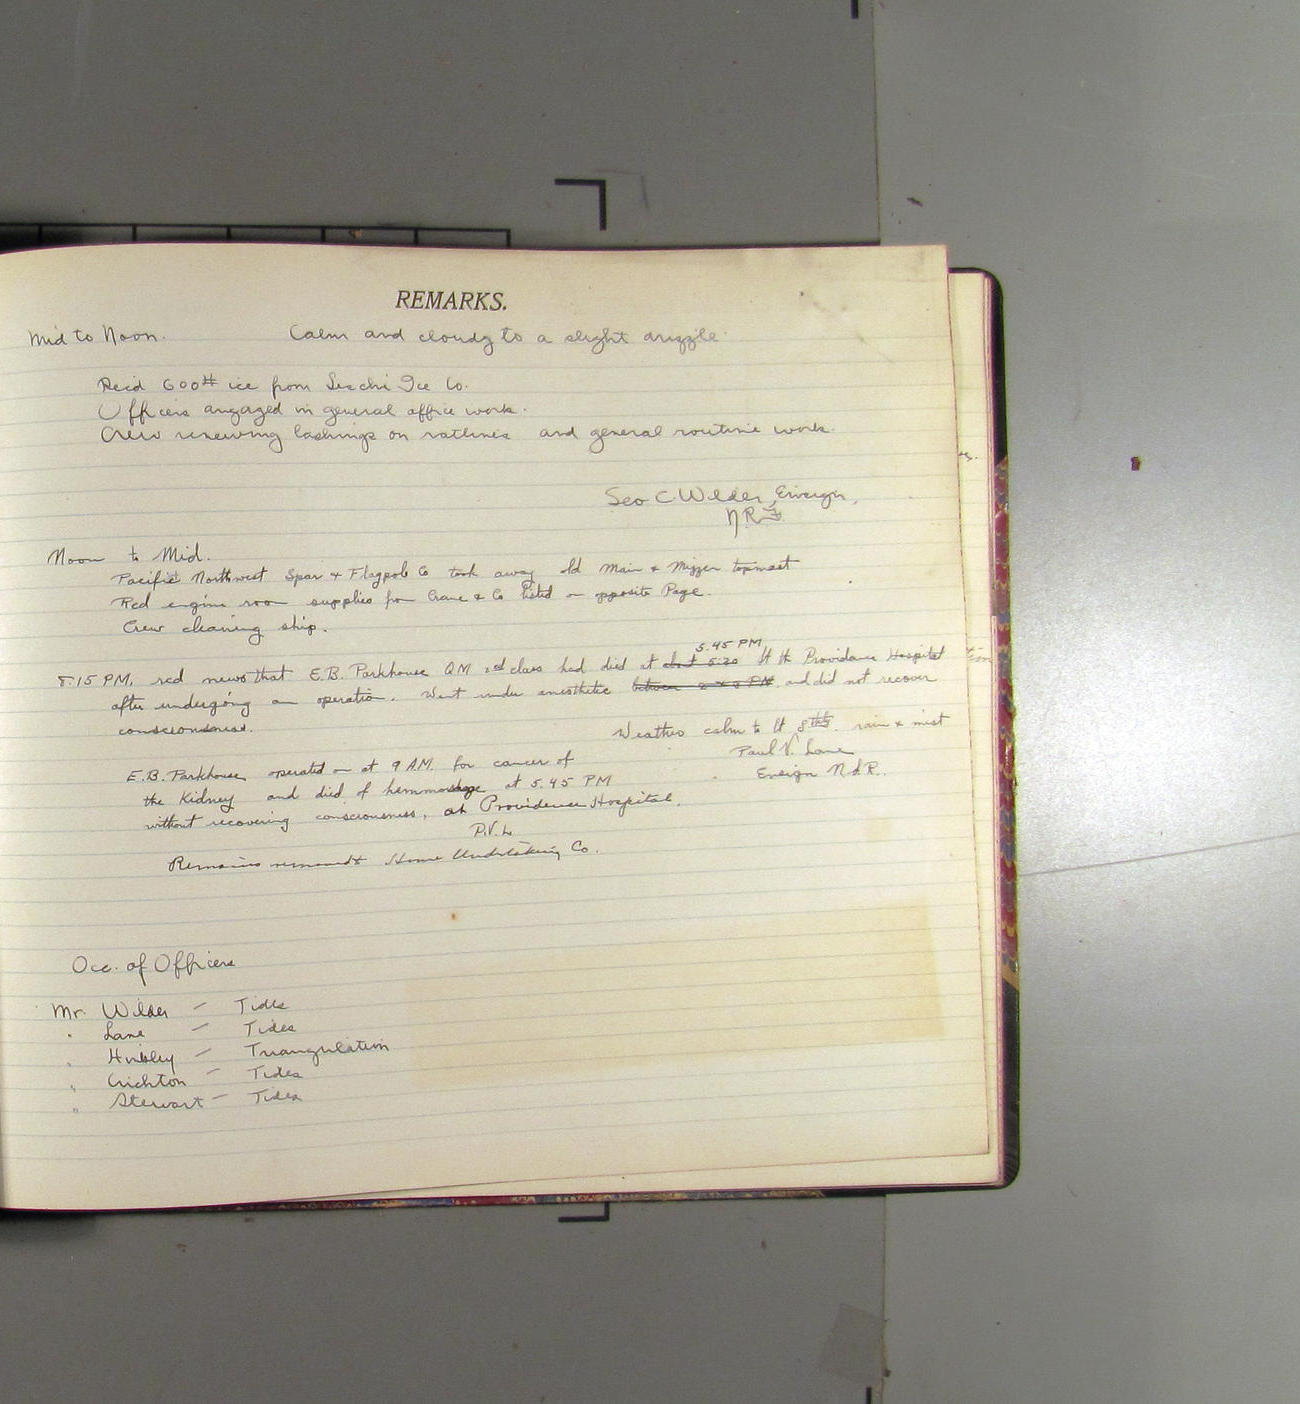 REMARKS.
Mid to Noon. Calm and cloudy to a slight drizzle
Rec'd 600# ice from Ice Co.
Officers engaged in general office work.
Crew renewing lashings on ratlines and general routine work.
Geo C Wilder, Ensign,
N.R.F.
Noon to Mid.
Pacific Northwest Spar & Flagpole Co took away old Main & Mizzen topmast
Rcd engine room supplies from Crane & Co listed on opposite Page.
Crew cleaning ship.
5.45 PM
8.15 PM, rcd news that E.B. Parkhouse QM 2nd class had died at about 5:20 at the Providence Hospital
after undergoing an operation. Went under anesthetic between 2 & 3 PM, and did not recover
consciousness.
Weather calm to lt rain & mist
Paul V. Lane
Ensign N.R.
E.B. Parkhouse operated on at 9 AM. for cancer of
the Kidney and died of hemmorhage at 5.45 PM
without recovering consciousness, at Providence Hospital.
P.V.L
Remains removed to Home Undertaking Co.
Occ. of Officers
Mr. Wilder - Tides
" Lane - Tides
" - Triangulation
" Crichton - Tides
" Stewart - Tides